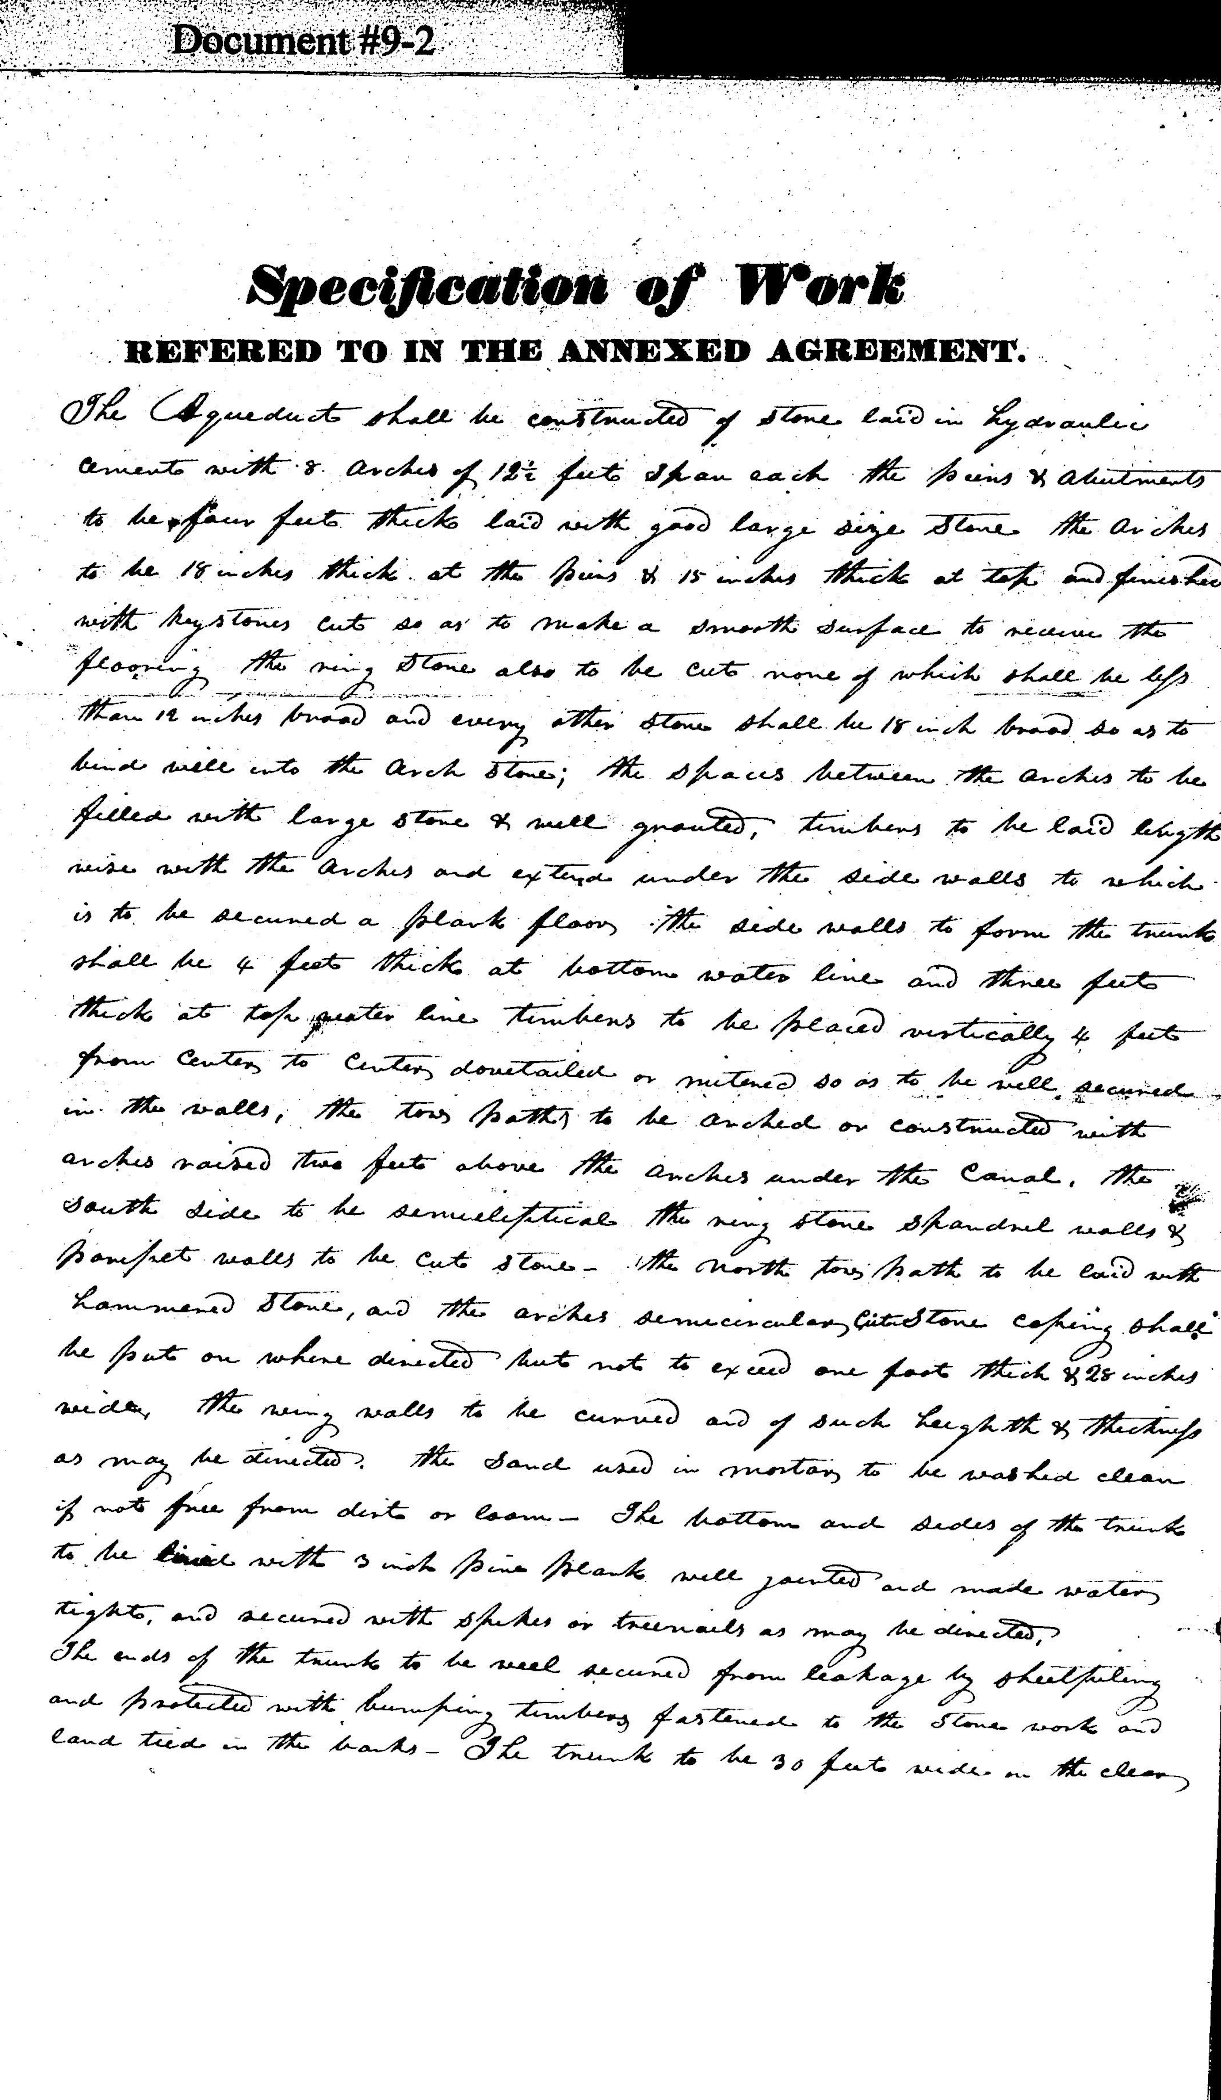 Document #9-2
Specification of Work
REFERED TO IN THE ANNEXED AGREEMENT.
The Aqueduct shall be constructed of stone laid in hydraulic
cement with 8 arches of 12½ feet span each the piers & abutments
to be four feet thick laid with good large size stone the arches
to be 18 inches thick at the piers & 15 inches thick at top and finished
with keystones cut so as to make a smooth surface to receive the
flooring the ring stone also to be cut none of which shall be less
than 12 inches broad and every other stone shall be 18 inch broad so as to
bind well into the arch stone; the spaces between the arches to be
filled with large stone & well grouted, timbers to be laid length
wise with the arches and extend under the side walls to which
is to be secured a plank floor, the side walls to form the trunk
shall be 4 feet thick at bottom water line and three feet
thick at top water line timbers to be placed virtically 4 feet
from center to center dovetailed or mitered so as to be well secured
in the walls, the tow paths to be arched or constructed with
arches raised two feet above the arches under the canal, the
south side to be semieliptical the ring stone spandrel walls &
parapet walls to be cut stone - the north tow path to be laid with
hammered stone, and the arches semicircular, Cut Stone coping shall
be put on where directed but not to exceed one foot thick & 28 inches
wide, the wing walls to be curved and of such heighth & thickness
as may be directed. the sand used in mortar to be washed clean
if not free from dirt or loam - The bottom and sides of the trunk
to be lined with 3 inch pine plank well jointed and made water
tight, and secured with spikes or treenails as may be directed,
The ends of the trunk to be well secured from leakage by sheetpiling
and protected with bumping timbers fastened to the stone work and
land tied in the banks - The trunk to be 30 feet wide in the clear